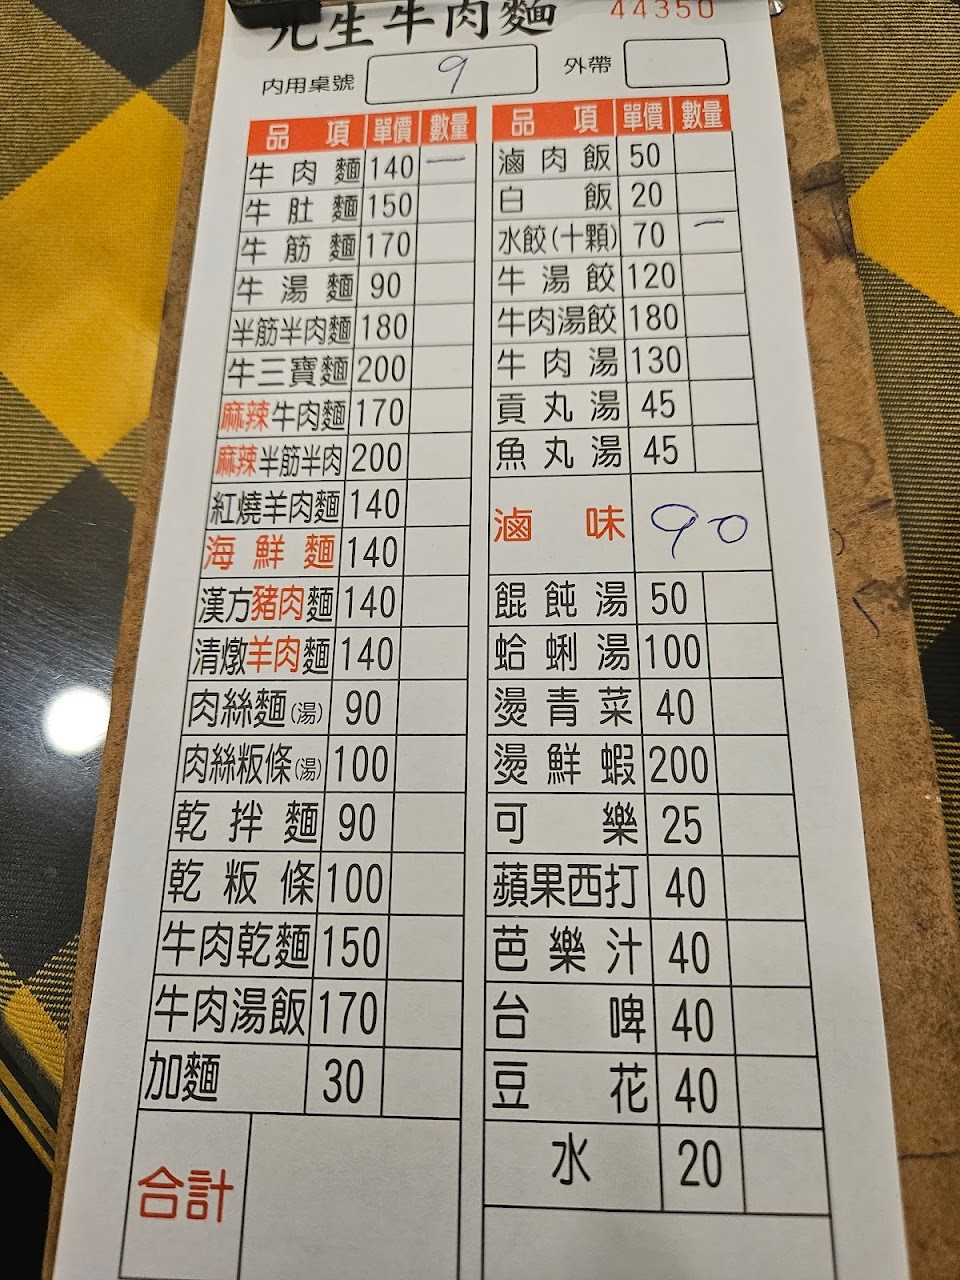 生牛肉麵 44350
內用桌號 9 外帶
品項 單價 數量
牛肉麵 140 一
牛肚麵 150
牛筋麵 170
牛湯麵 90
半筋半肉麵 180
牛三寶麵 200
麻辣牛肉麵 170
麻辣半筋半肉 200
紅燒羊肉麵 140
海鮮麵 140
漢方豬肉麵 140
清燉羊肉麵 140
肉絲麵(湯) 90
肉絲粄條(湯) 100
乾拌麵 90
乾粄條 100
牛肉乾麵 150
牛肉湯飯 170
加麵 30
合計
品項 單價 數量
滷肉飯 50
白飯 20
水餃(十顆) 70 一
牛湯餃 120
牛肉湯餃 180
牛肉湯 130
貢丸湯 45
魚丸湯 45
滷味 90
餛飩湯 50
蛤蜊湯 100
燙青菜 40
燙鮮蝦 200
可樂 25
蘋果西打 40
芭樂汁 40
台啤 40
豆花 40
水 20